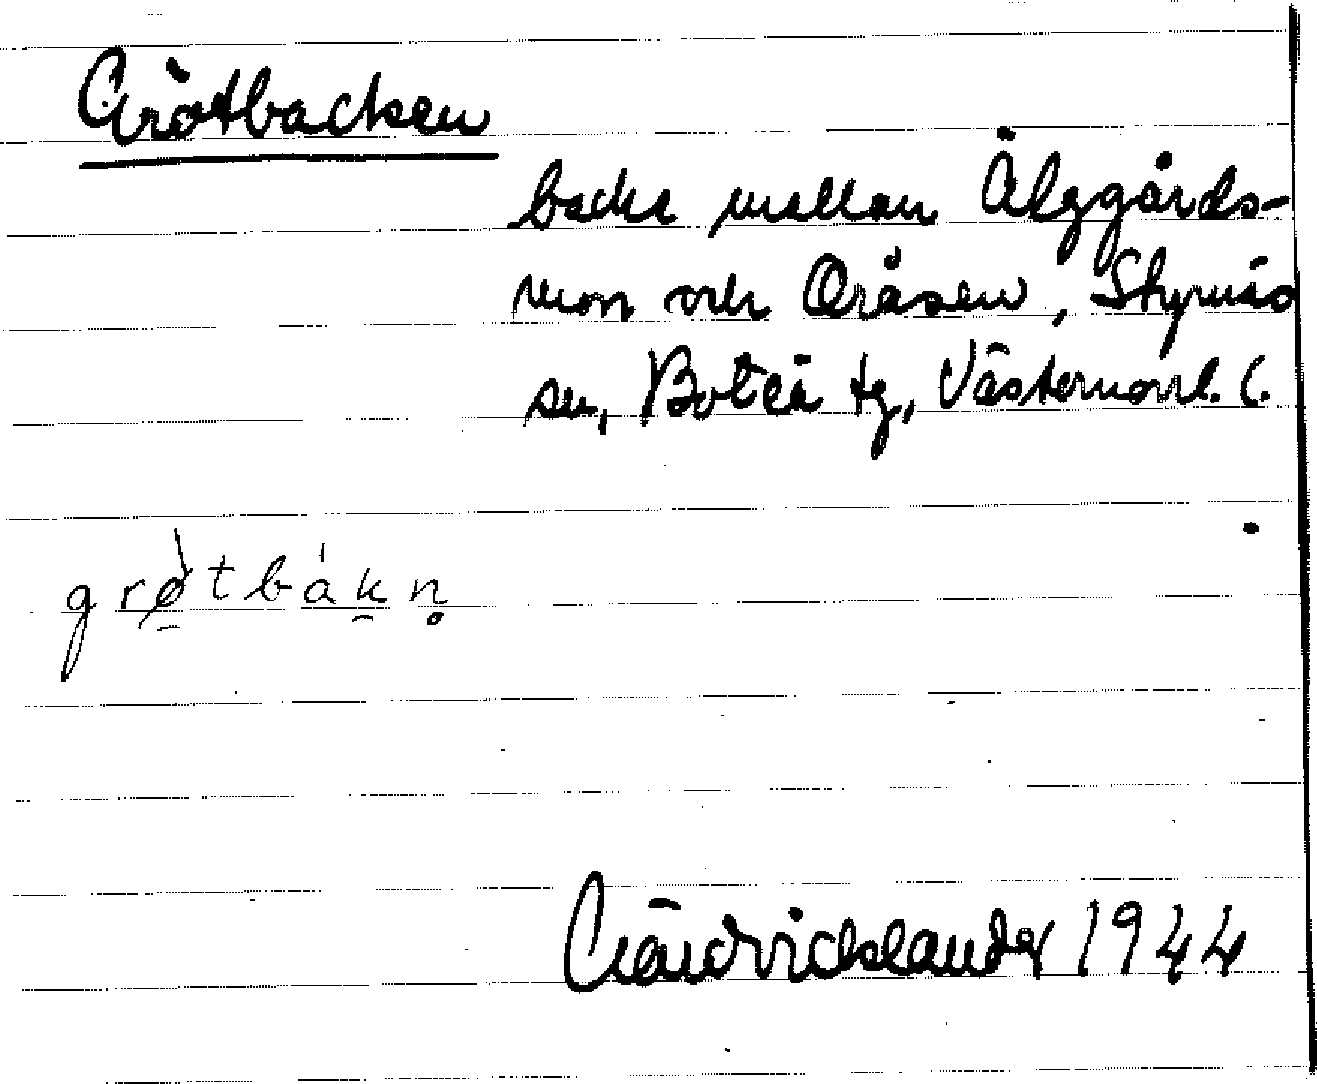 Grötbacken
backe mellan Älggårds-
mon och Oråsen, Styrnäs
sn, Boteå tg, Västernorrl. l.
grøtbákn̥
1944